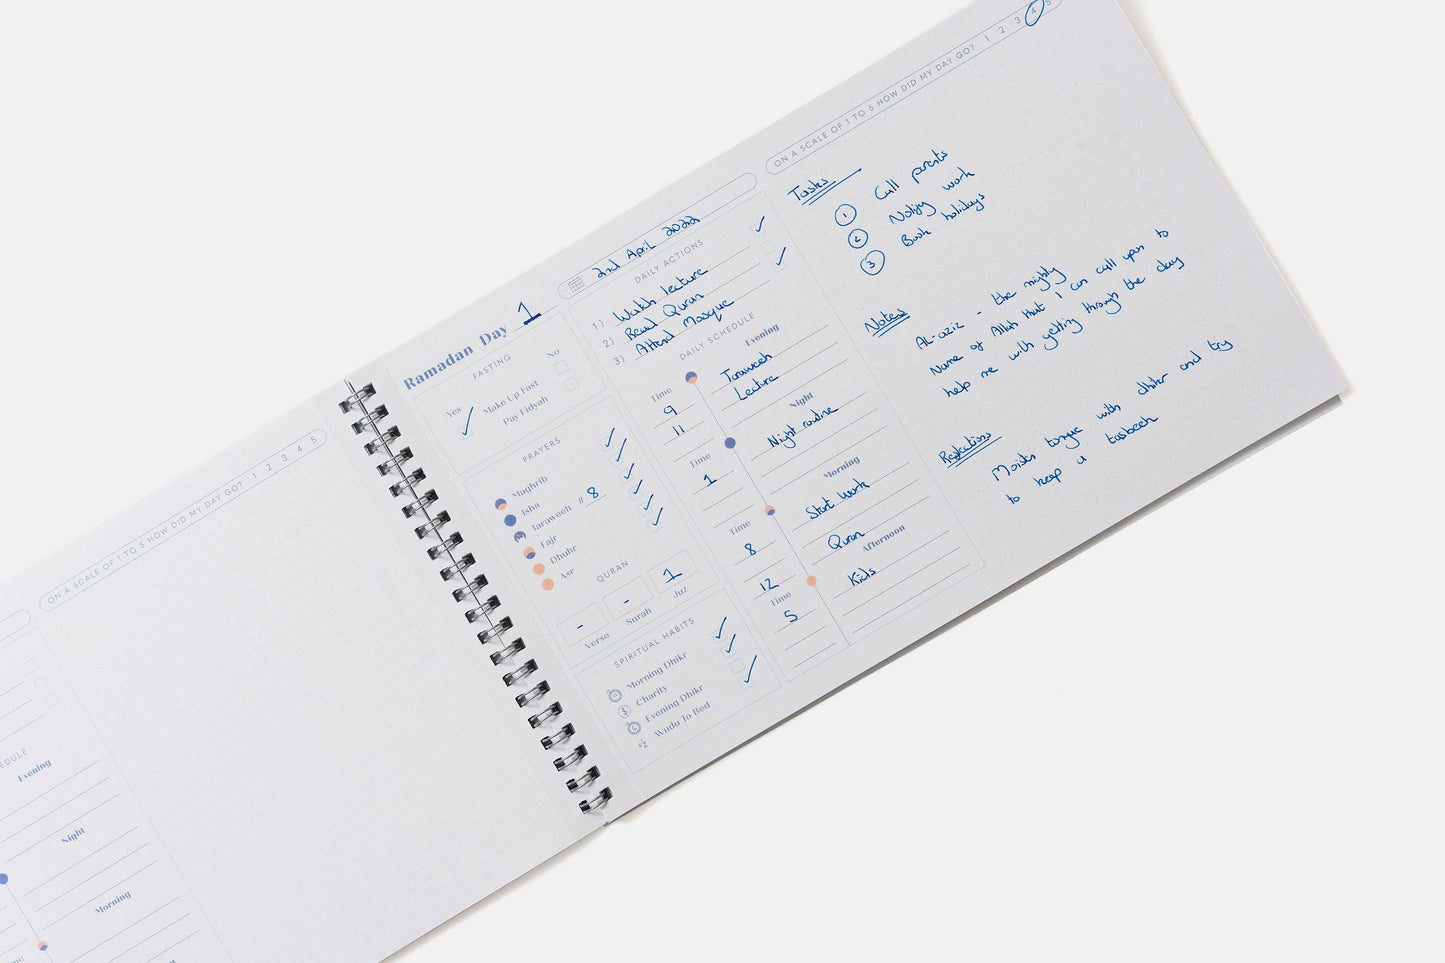 ON A SCALE OF 1 TO 5 HOW DID MY DAY GO? 1 2 3 4 5
Evening
Night
Morning
Ramadan Day 1
2nd April 2022
FASTING
Yes No
Make Up Fast
Pay Fidyah
PRAYERS
Maghrib
Isha
Taraweeh # 8
Fajr
Dhuhr
Asr
QURAN
- - 1
Verse Surah Juz
SPIRITUAL HABITS
Morning Dhikr
Charity
Evening Dhikr
Wudu To Bed
DAILY ACTIONS
1) Watch lecture
2) Read Quran
3) Attend Mosque
DAILY SCHEDULE
Evening
Time
9 Taraweeh
11 Lecture
Night
Time
1 Night routine
Morning
Time
8 Start work
12 Quran
Afternoon
Time
5 Kids
ON A SCALE OF 1 TO 5 HOW DID MY DAY GO? 1 2 3 4 5
Tasks
1 Call parents
2 Notify work
3 Book holidays
Notes
AL-aziz - the mighty
Name of Allah that I can call upon to
help me with getting through the day
Reflections
Moisten tongue with dhikr and try
to keep a tasbeeh